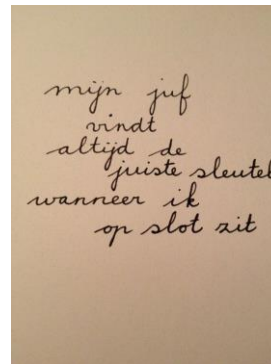 mijn juf
vindt
altijd de
juiste sleutel
wanneer ik
op slot zit